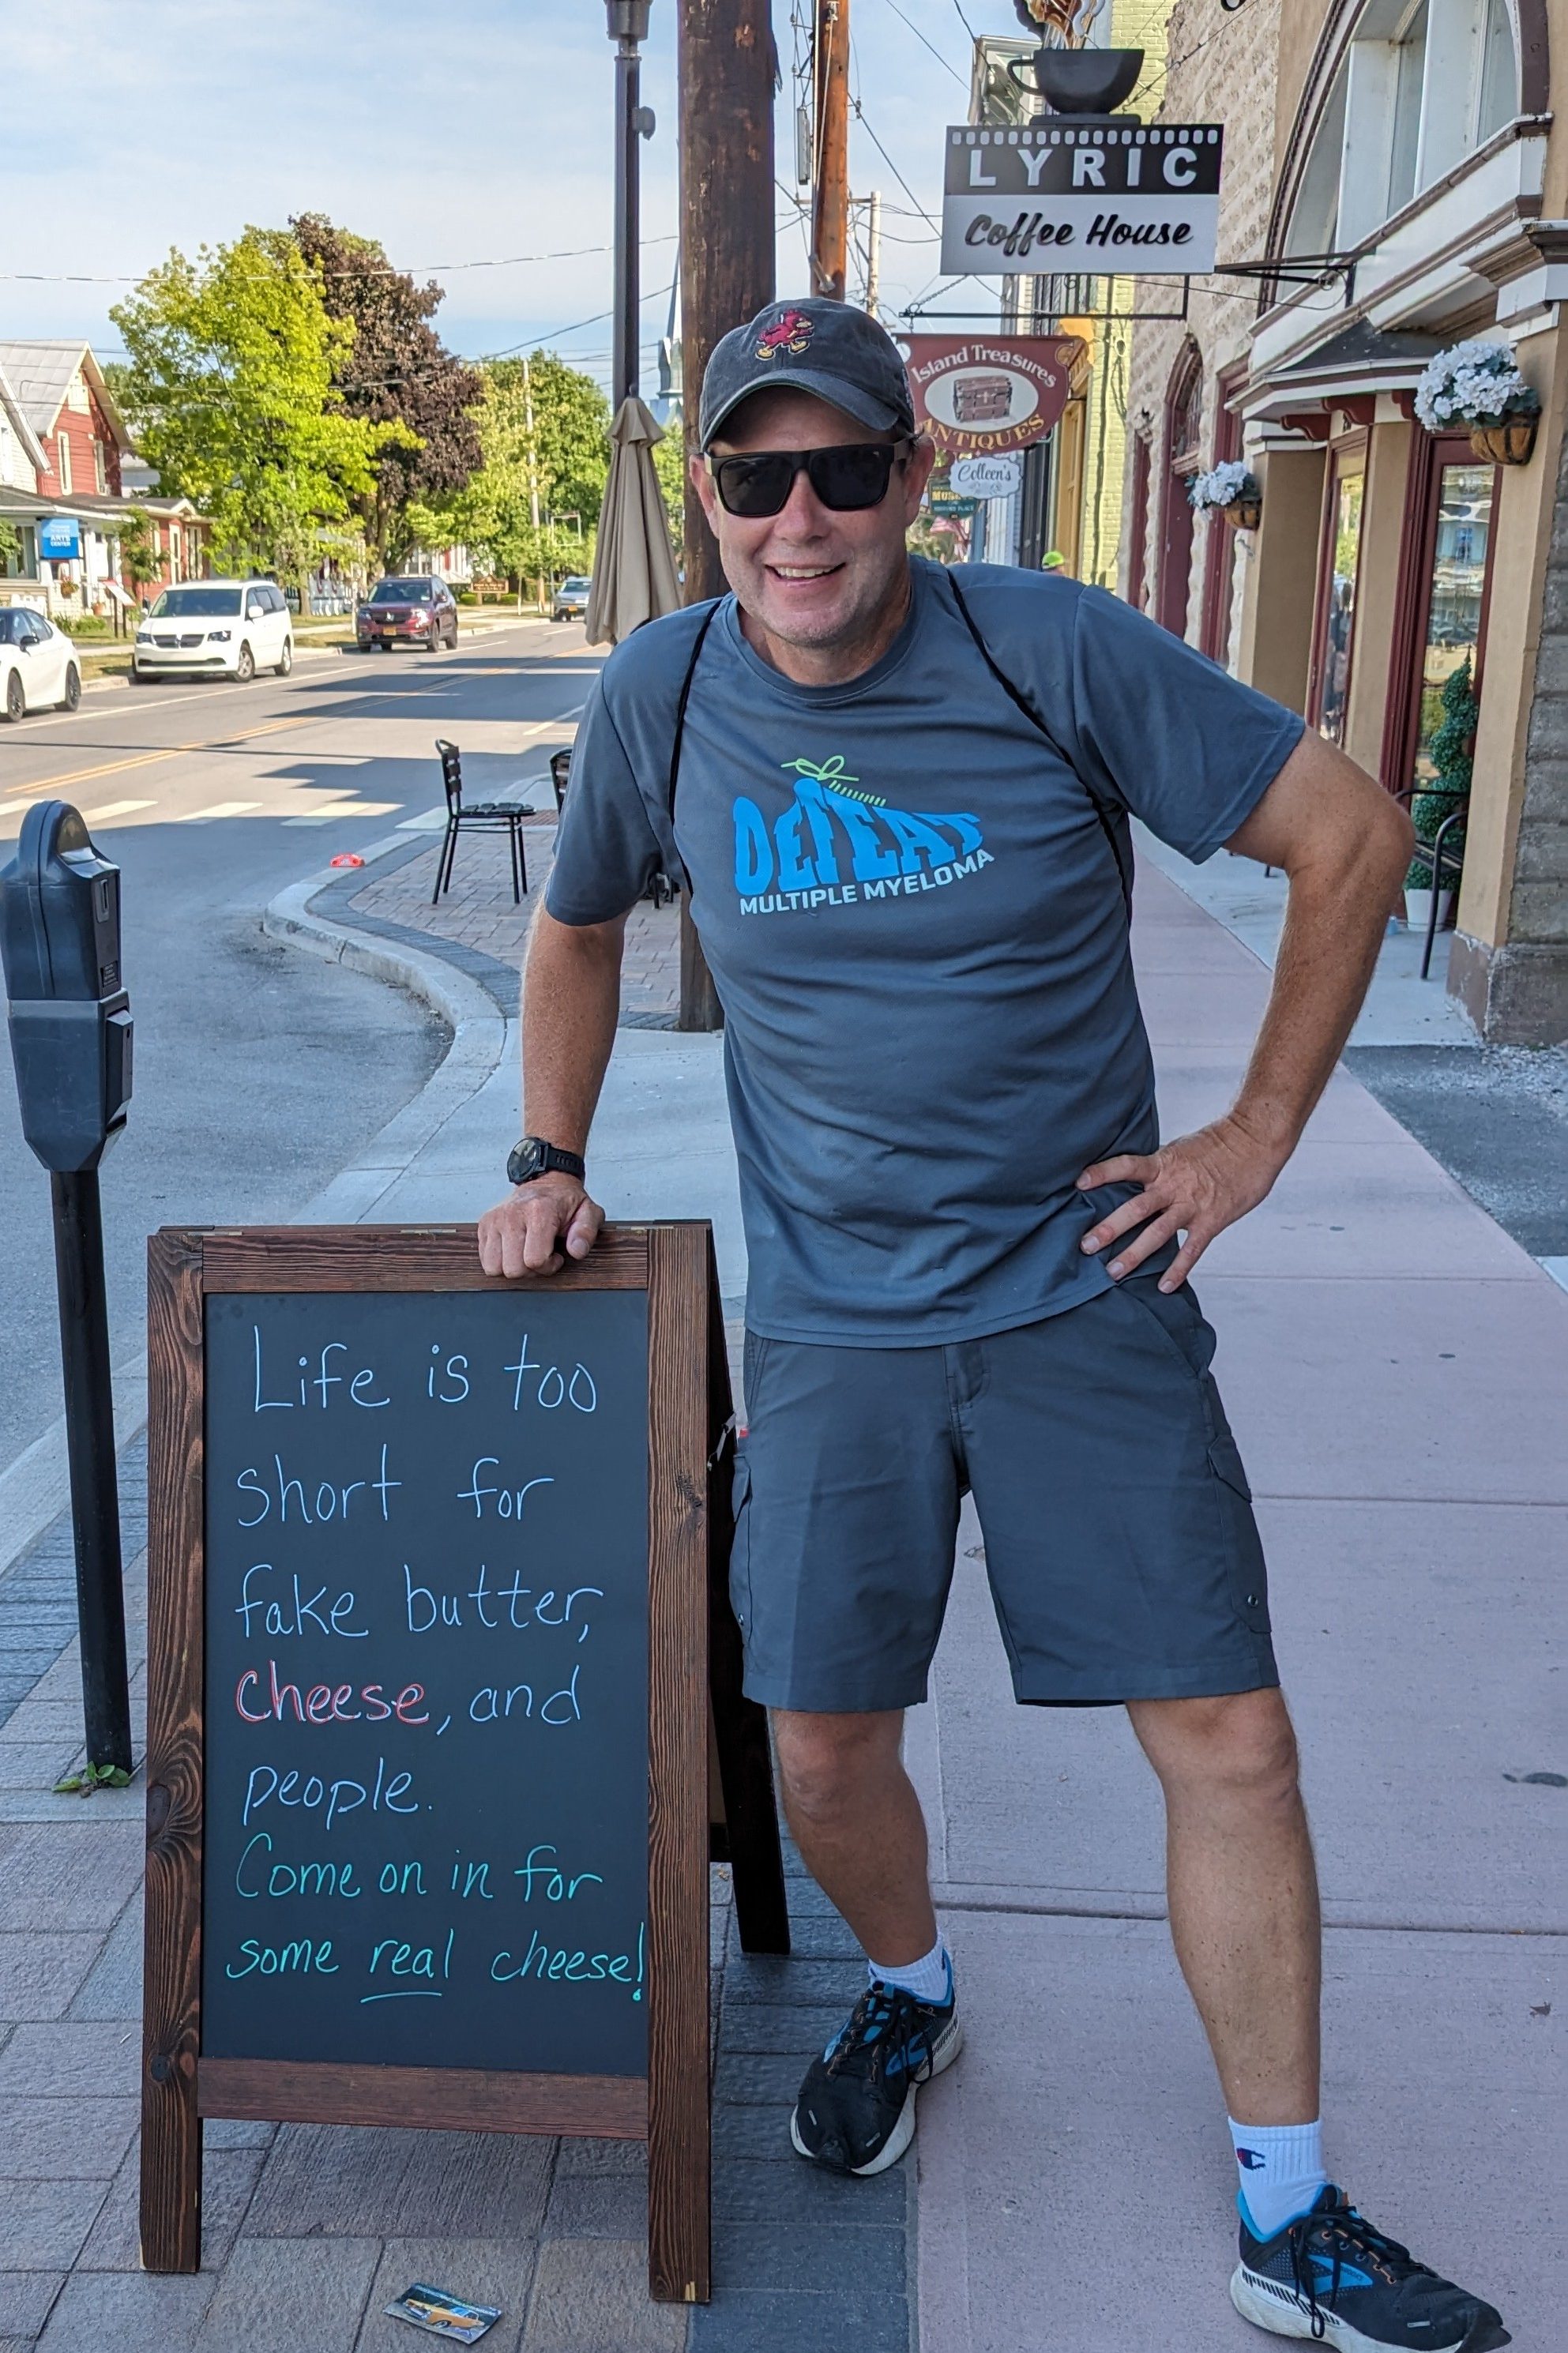 LYRIC
Coffee House
Island Treasures
ANTIQUES
Colleen's
ARTS
CENTER
DEFEAT
MULTIPLE MYELOMA
Life is too
short for
fake butter,
cheese, and
people.
Come on in for
some real cheese!